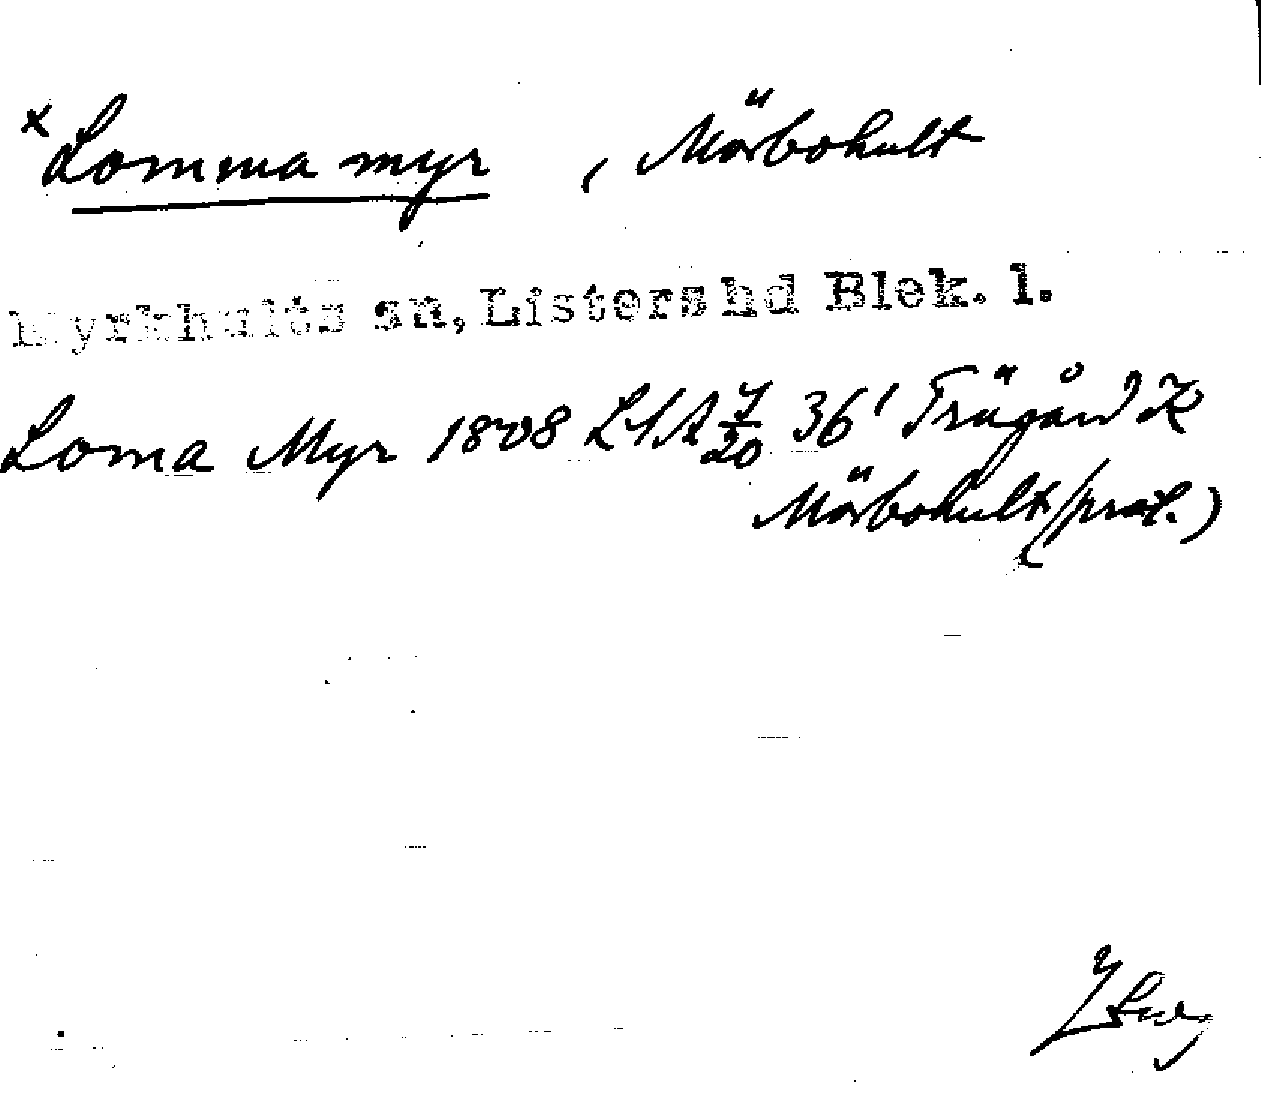 x Lomma myr, Mörbohult
Kyrkhults sn, Listers hd Blek. l.
Loma Myr 1808 LSA 7/20 36' Trägård K
Mörbohult (prot.)